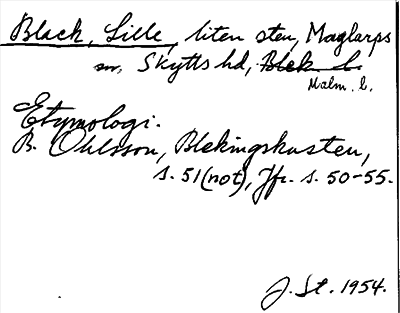 Black, Lille, liten sten, Maglarps
sn, Skytts hd, Blek. l.
Malm. l.
Etymologi.
B. Ohlsson, Blekingskusten,
s. 51 (not), Jfr. s. 50-55.
J. St. 1954.